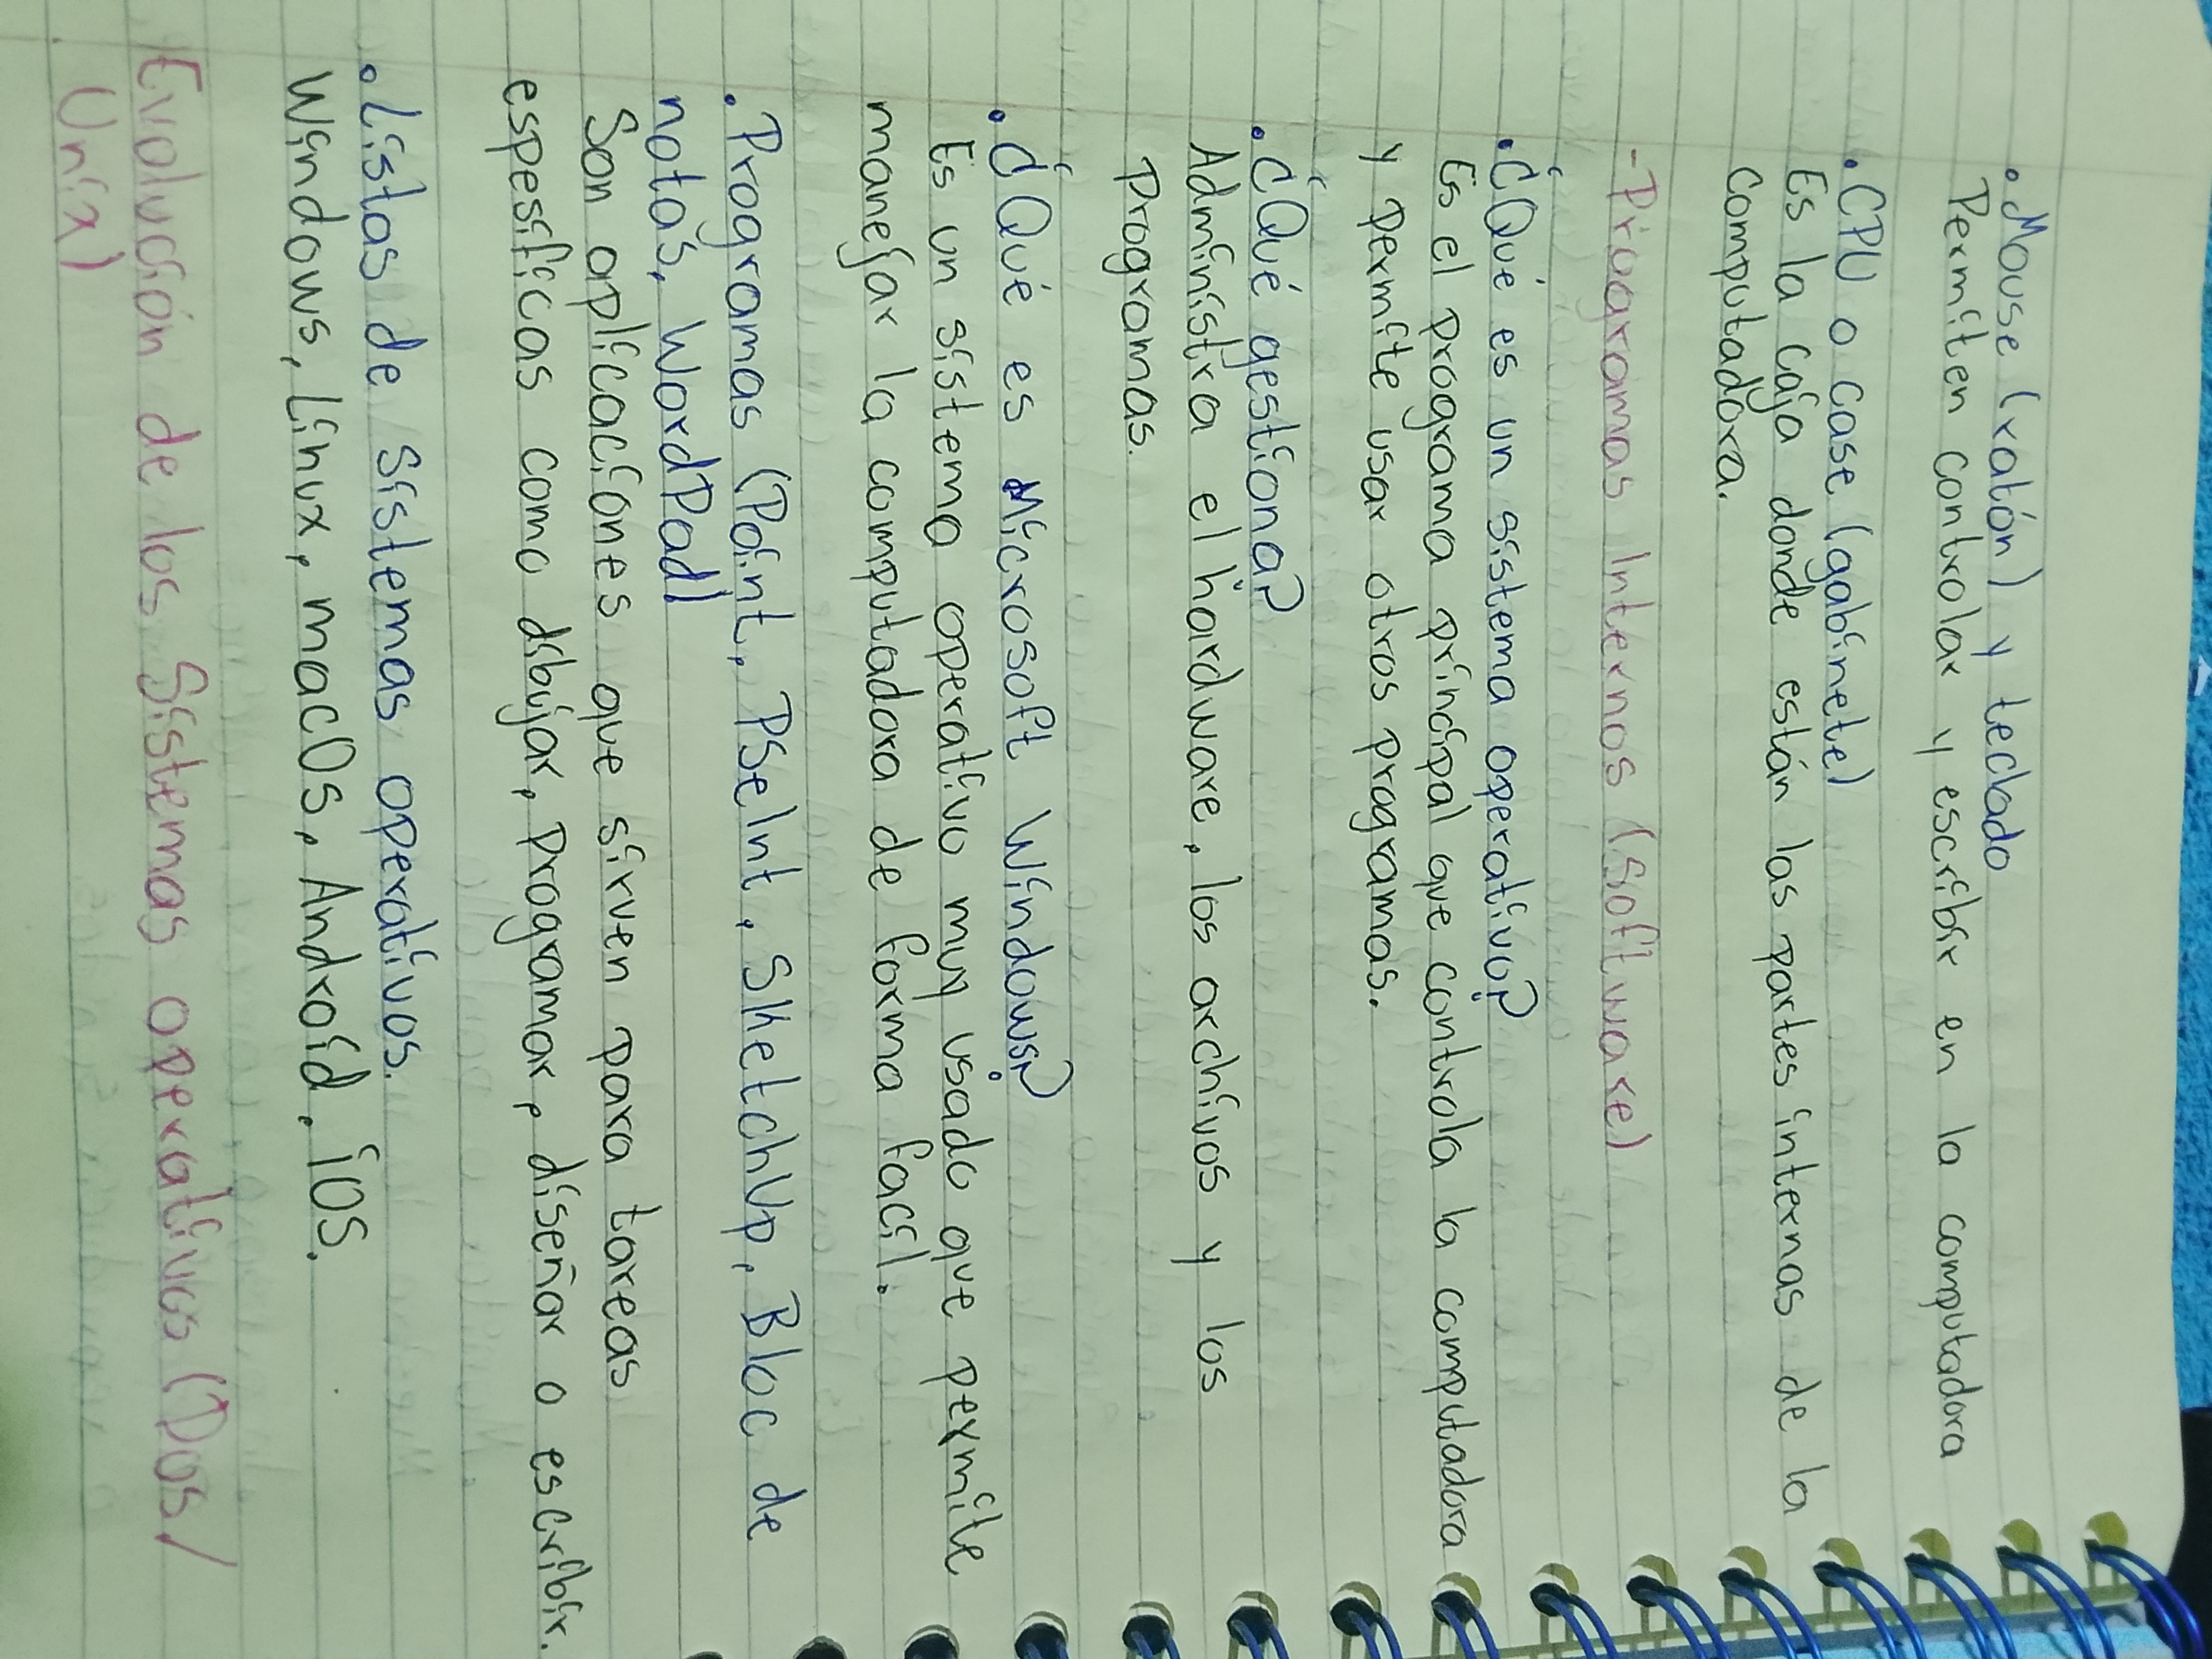 • Mouse (ratón) y teclado
Permiten controlar y escribir en la computadora
• CPU o case (gabinete)
Es la caja donde están las partes internas de la
computadora.
- Programas Internos (Software)
• ¿Qué es un sistema operativo?
Es el programa principal que controla la computadora
y permite usar otros programas.
• ¿Qué gestiona?
Administra el hardware, los archivos y los
programas.
• ¿Qué es Microsoft Windows?
Es un sistema operativo muy usado que permite
manejar la computadora de forma facíl.
• Programas (Paint, PSeInt, SketchUp, Bloc de
notas, WordPad)
Son aplicaciones que sirven para tareas
espesíficas como dibujar, programar, diseñar o escribir.
• Listas de sistemas operativos.
Windows, Linux, macOs, Android, iOS.
Evolución de los Sistemas operativos (Dos/
Unix)